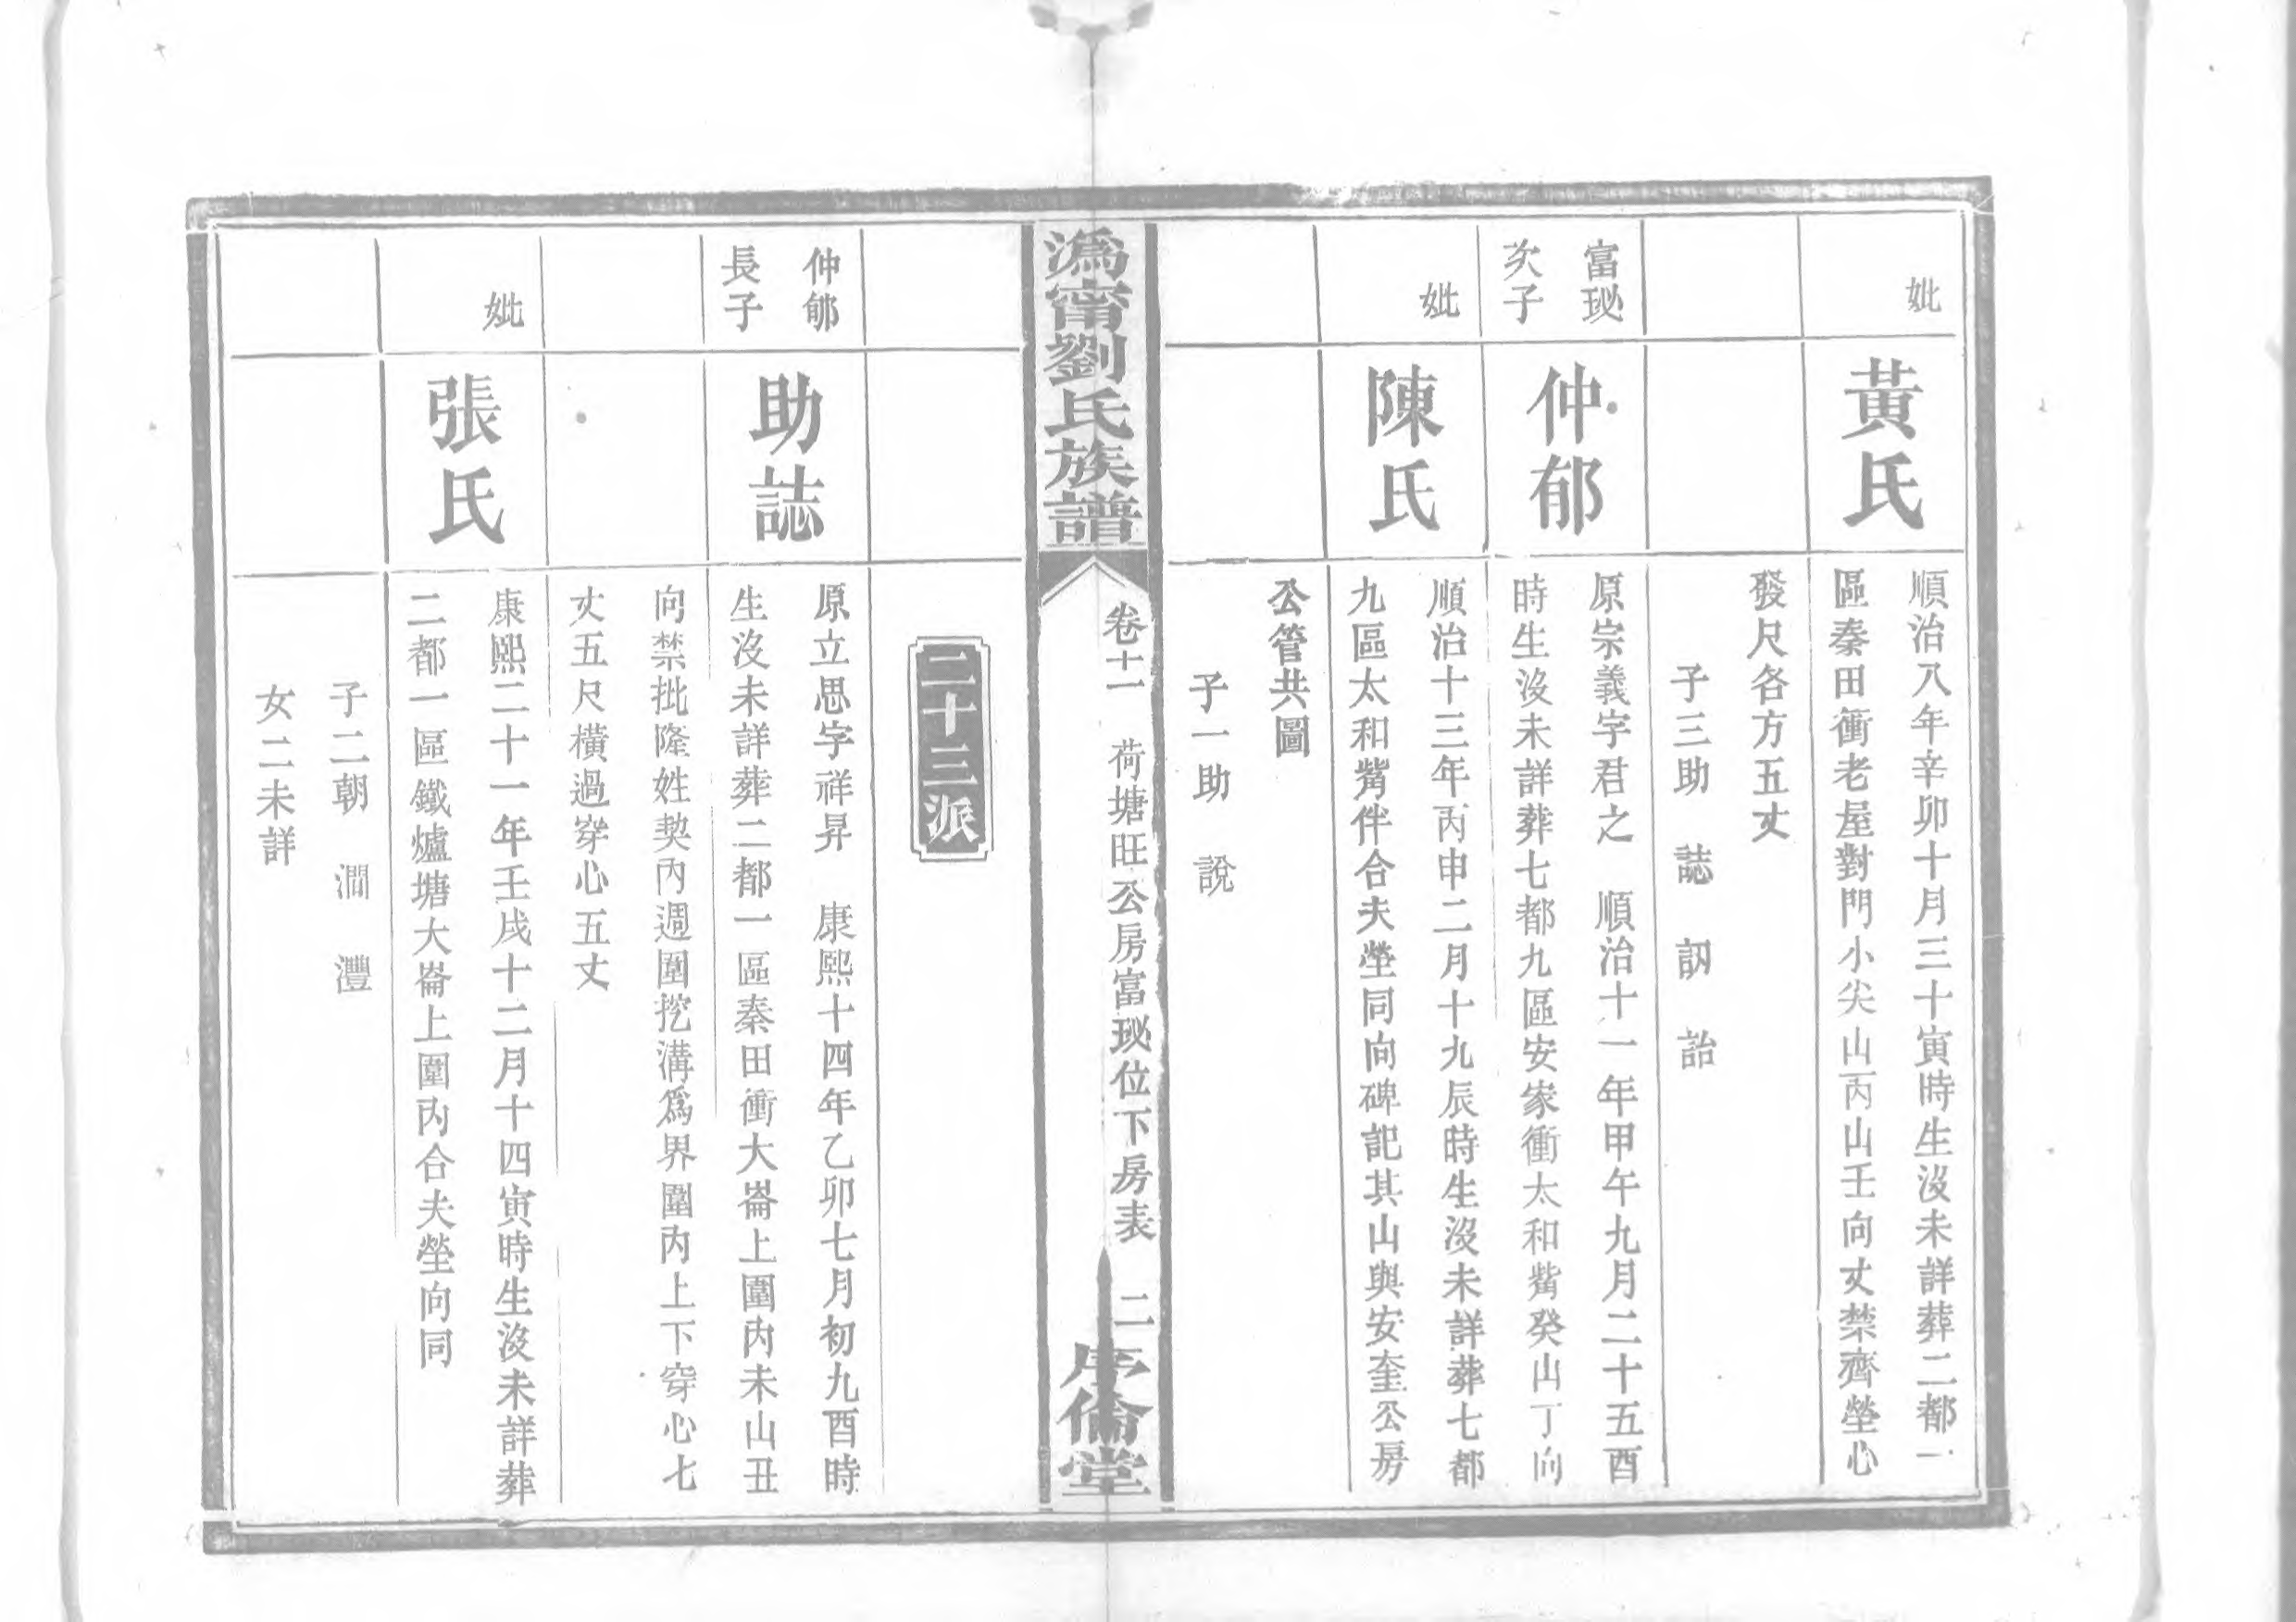 妣
黃氏
順治八年辛卯十月三十寅時生沒未詳葬二都一
區秦田衝老屋對門小尖山丙山壬向丈禁齊塋心
發尺各方五丈
子三助 誌 訒 詒
富珌
次子
仲郁
原宗義字君之 順治十一年甲午九月二十五酉
時生沒未詳葬七都九區安家衝太和觜癸山丁向
妣
陳氏
順治十三年丙申二月十九辰時生沒未詳葬七都
九區太和觜伴合夫塋同向碑記其山與安奎公房
公管共圖
子一助 說
溈甯劉氏族譜
卷十一 荷塘旺公房富珌位下房表 二
序倫堂
二十三派
仲郁
長子
助誌
原立思字祥昇 康熙十四年乙卯七月初九酉時
生沒未詳葬二都一區秦田衝大崙上圍內未山丑
向禁批隆姓契內週圍挖溝為界圍內上下穿心七
丈五尺橫過穿心五丈
妣
張氏
康熙二十一年壬戌十二月十四寅時生沒未詳葬
二都一區鐵爐塘大崙上圍內合夫塋向同
子二朝 澗 灃
女二未詳